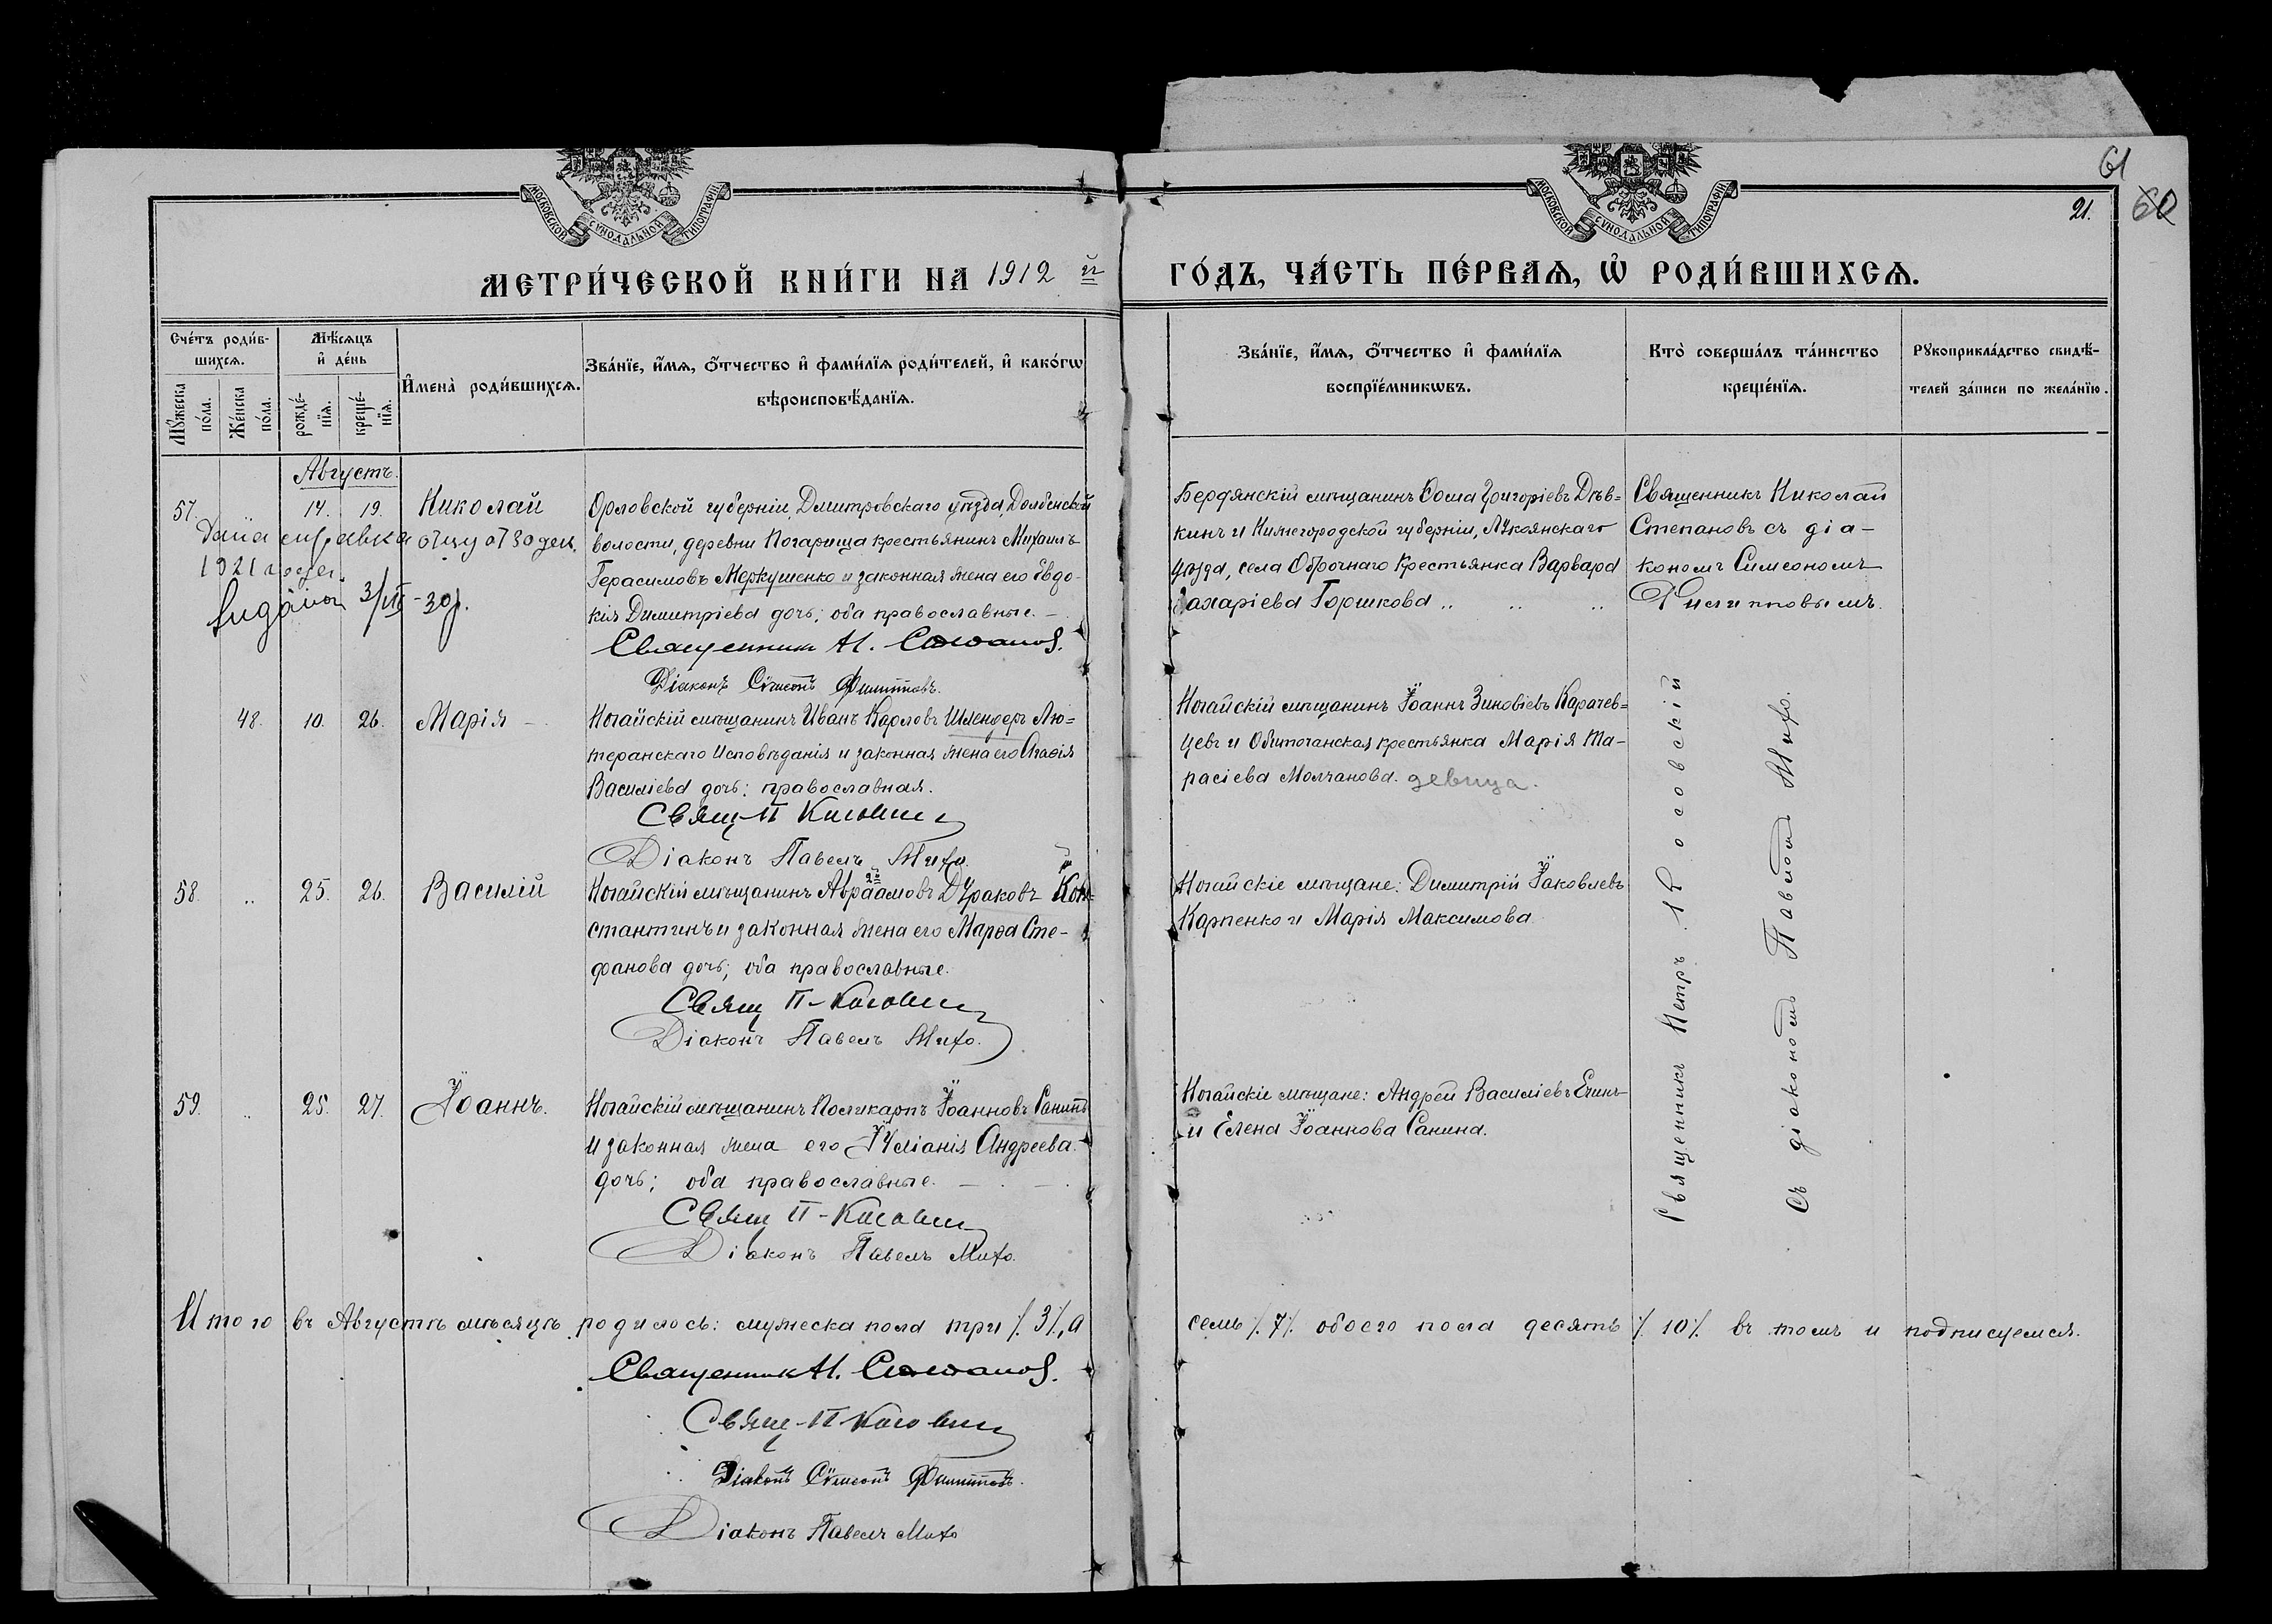 МОСКОВСКОЙ СѴНОДАЛЬНОЙ ТИПОГРАФІИ
МОСКОВСКОЙ СѴНОДАЛЬНОЙ ТИПОГРАФІИ
61
21.
60
МЕТРИ́ЧЕСКОЙ КНИ́ГИ НА 1912 й
ГО́ДЪ, ЧА́СТЬ ПЕ́РВАѦ, Ѡ РОДИ́ВШИХСѦ.
Сче́тъ роди́в-
шихсѧ.
Мꙋ́жеска по́ла.
Же́нска по́ла.
Мѣ́сѧцъ
и де́нь
рожде́-
нїѧ.
креще́-
нїѧ.
Имена̀ роди́вшихсѧ.
Зва́нїе, и́мѧ, о́тчество и фами́лїѧ роди́телей, и како́гѡ
вѣроисповѣ́данїѧ.
Зва́нїе, и́мѧ, о́тчество и фами́лїѧ
воспрїе́мникѡвъ.
Кто̀ соверша́лъ та́инство
креще́нїѧ.
Рꙋкоприкла́дство свидѣ́-
телей за́писи по жела́нїю.
Августъ.
57. 14. 19. Николай
Дана справка отцу от 30 дек.
1921 года.
Орловской губерніи, Дмитровскаго уѣзда, Долбенской
волости, деревни Погарища крестьянинъ Михаилъ
Герасимовъ Меркушенко и законная жена его Евдо-
кія Димитріева дочь; оба православные. –
Священник Н. Степанов.
Діаконъ Сѵмеонъ Филипповъ.
Бердянскій мѣщанинъ Ѳома Григоріевъ Дѣв-
кинъ и Нижегородской губерніи, Лукоянскаго
уѣзда, села Оброчнаго крестьянка Варвара
Захаріева Горшкова
Священникъ Николай
Степановъ съ діа-
кономъ Симеономъ
Филипповымъ.
48. 10. 26. Марія –
Ногайскій мѣщанинъ Иванъ Карловъ Шлендеръ Лю-
теранскаго Исповѣданія и законная жена его Агаѳія
Василіева дочь: православная.
Свящ П
Діаконъ Павелъ Михо.
Ногайскій мѣщанинъ Іоаннъ Зиновіевъ Карачев-
цевъ и Обиточанская крестьянка Марія Та-
расіева Молчанова. девица.
58. .. 25. 26. Василій
Ногайскій мѣщанинъ Авраамовъ Дураковъ Кон-
стантинъ и законная жена его Марѳа Сте-
фанова дочь; оба православные.
Свящ П
Діаконъ Павелъ Михо.
Ногайскіе мѣщане: Димитрій Іаковлевъ
Карпенко и Марія Максимова
59. .. 25. 27. Іоаннъ.
Ногайскій мѣщанинъ Поликарпъ Іоанновъ Санинъ
и законная жена его Іуліанія Андреева
дочь; оба православные. –
Свящ П
Діаконъ Павелъ Михо.
Ногайскіе мѣщане: Андрей Василіевъ Ечинъ
и Елена Іоаннова Санина.
Священникъ Петръ
Съ діакономъ Павломъ Михо.
Итого въ Августѣ мѣсяцѣ родилось: мужеска пола три /. 3 /., а
семь /. 7 /. обоего пола десять /. 10 /. въ томъ и подписуемся.
Священник Н. Степанов.
Свящ П
Діаконъ Сѵмеонъ Филипповъ.
Діаконъ Павелъ Михо